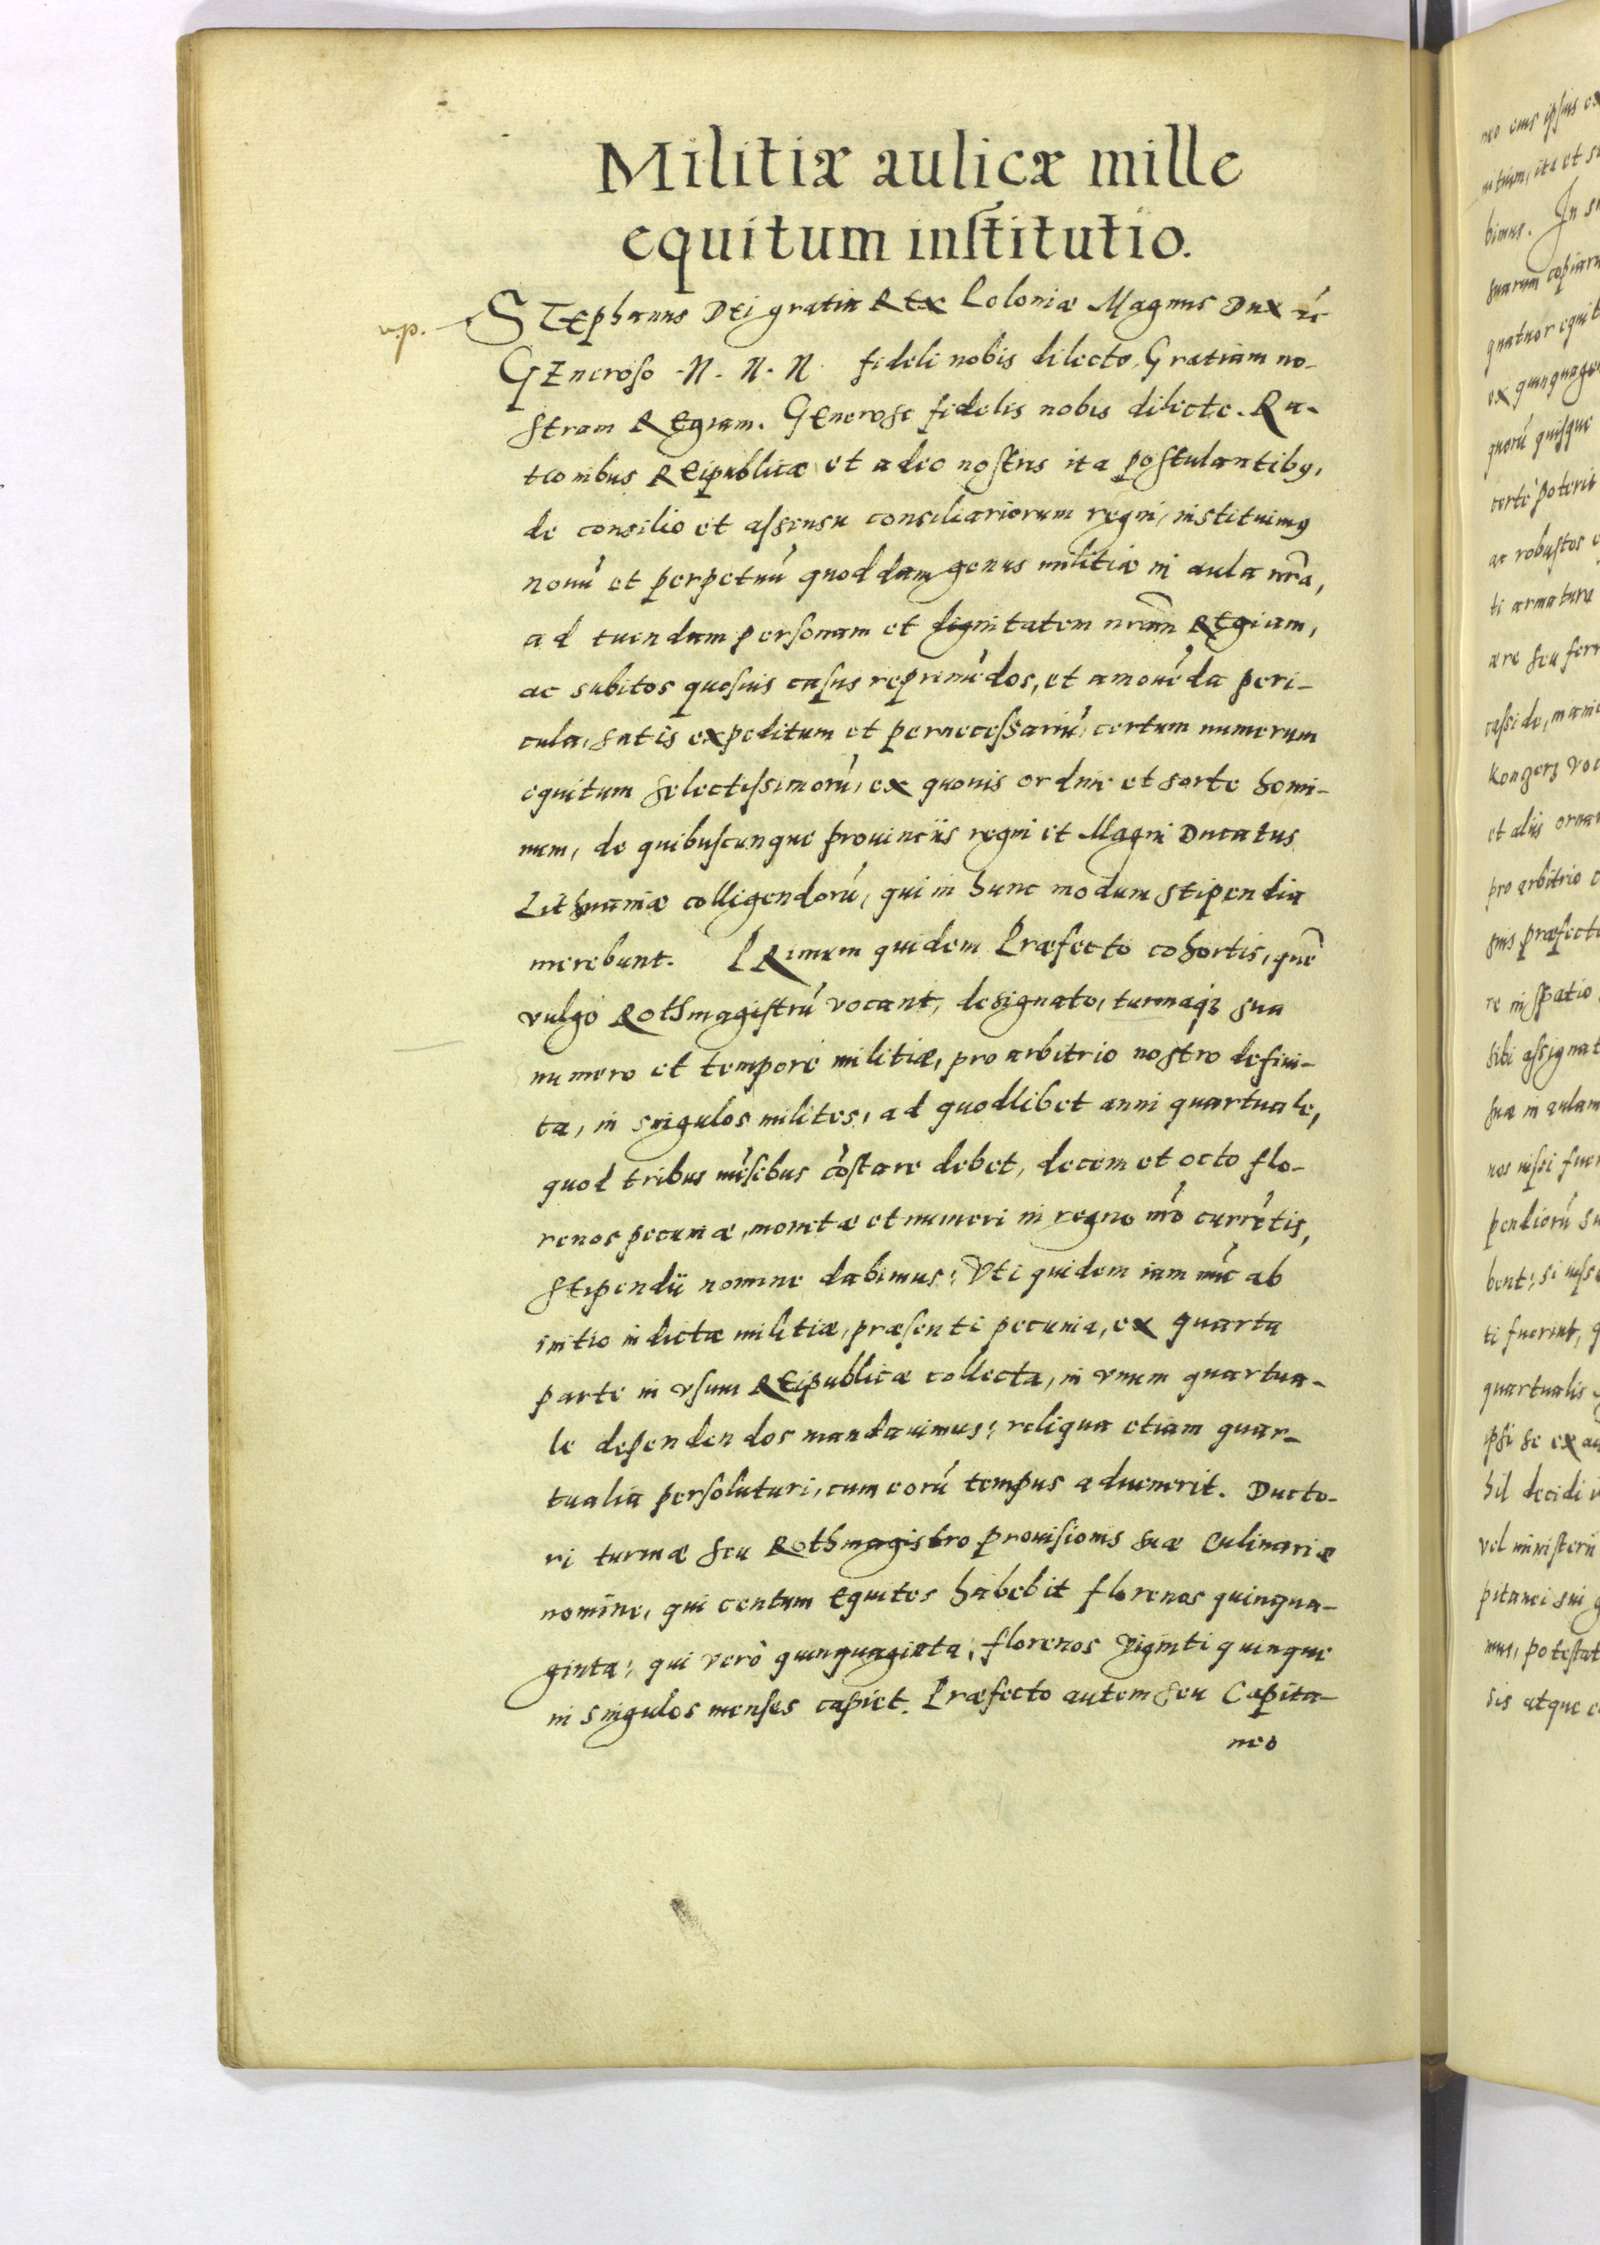 Militiæ aulicæ mille
equitum institutio.
v.p.
STEphanus DEi gratia REx Poloniæ Magnus Dux ꝛć
GEneroso .N. N. N. fideli nobis dilecto. Gratiam no-
stram REgiam. GEnerose fidelis nobis dilecte. Ra-
tionibus REipublicæ et adeo nostris ita postulantibꝫ,
de consilio et assensu consiliariorum regni, instituimꝫ
nouũ et perpetuũ quoddam genus militiæ in aula nr̃a,
ad tuendam personam et dignitatem nr̃am REgiam,
ac subitos quosuis casus reprimẽdos, et amouẽda peri-
cula, satis expeditum et pernecessariũ, certum numerum
equitum selectissimorũ, ex quouis ordine et sorte homi-
num, de quibuscunque prouinciis regni et Magni Ducatus
Lithuaniæ colligendorũ, qui in hunc modum stipendia
merebunt. PRimum quidem Præfecto cohortis, quẽ
vulgo Rothmagistrũ vocant, designato, turmaqꝫ sua
numero et tempore militiæ, pro arbitrio nostro defini-
ta, in singulos milites, ad quodlibet anni quartuale,
quod tribus mẽsibus cõstare debet, decem et octo flo-
renos pecuniæ, monetæ et numeri in regno nr̃o currẽtis,
stipendii nomine dabimus: Vti quidem iam nũc ab
initio indictæ militiæ, præsenti pecunia, ex quarta
parte in vsum REipublicæ collecta, in vnum quartua-
le dependendos mandauimus; reliqua etiam quar-
tualia persoluturi, cum eorũ tempus aduenerit. Ducto-
ri turmæ seu Rothmagistro prouisionis suæ Culinariæ
nomine, qui centum Equites habebit florenos quinqua-
ginta; qui verò quinquaginta; florenos viginti quinque
in singulos menses capiet. Præfecto autem seu Capita-
neo
neo eius ipsius
bimus. In
suarum copiaru
quatuor equit
ex quinquage
quorũ quisque
certè poterit
ac robustos
ti armatura
ære seu ferr
casside, mani
et aliis orna
pro arbitrio
suis præfect
re in spatio
sibi assignat
suæ in aulam
nos nisi fuer
pendiorũ
ti fuerint,
quartualis
ipsi se ex
hil decidi
vel ministerii
pitanei sui
mus, potestat
sis atque